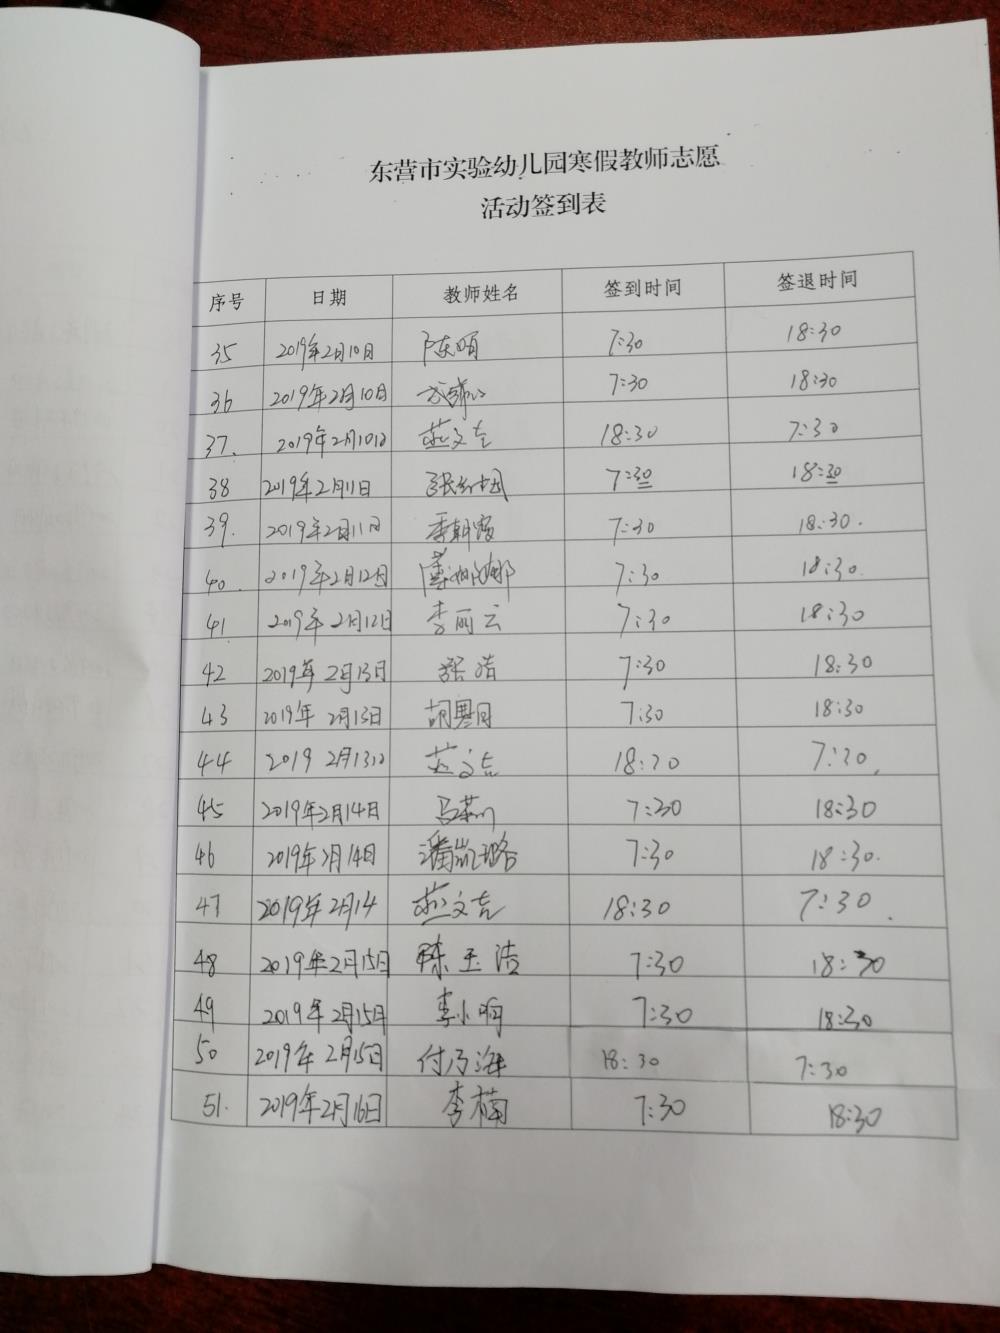 东营市实验幼儿园寒假教师志愿
活动签到表
序号 日期 教师姓名 签到时间 签退时间
35 2019年2月10日 陈颂 7:30 18:30
36 2019年2月10日 7:30 18:30
37. 2019年2月10日 燕文吉 18:30 7:30
38 2019年2月11日 7:30 18:30
39. 2019年2月11日 季朝霞 7:30 18:30.
40. 2019年2月12日 7:30 18:30.
41. 2019年2月12日 李丽云 7:30 18:30
42 2019年2月13日 7:30 18:30
43 2019年2月13日 胡寒月 7:30 18:30
44 2019 2月13日 燕文吉 18:30 7:30.
45 2019年2月14日 马莉 7:30 18:30
46 2019年2月14日 潘凯璐 7:30 18:30.
47 2019年2月14 燕文吉 18:30 7:30.
48 2019年2月15日 陈玉洁 7:30 18:30
49 2019年2月15日 李小明 7:30 18:30
50 2019年2月15日 付乃海 18:30 7:30
51. 2019年2月16日 李楠 7:30 18:30